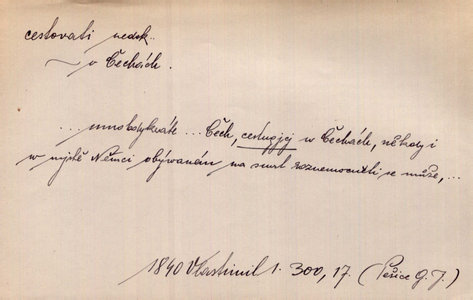 cestovati nedok..
~ v Čechách.
... mnohokráte ... Čech, cestugjcj w Čechách, někdy i
w mjstě Němci obýwaném na smrt roznemocniti se může, ...
1840 Vlastimil 1. 300, 17. (Pešice G. J.)